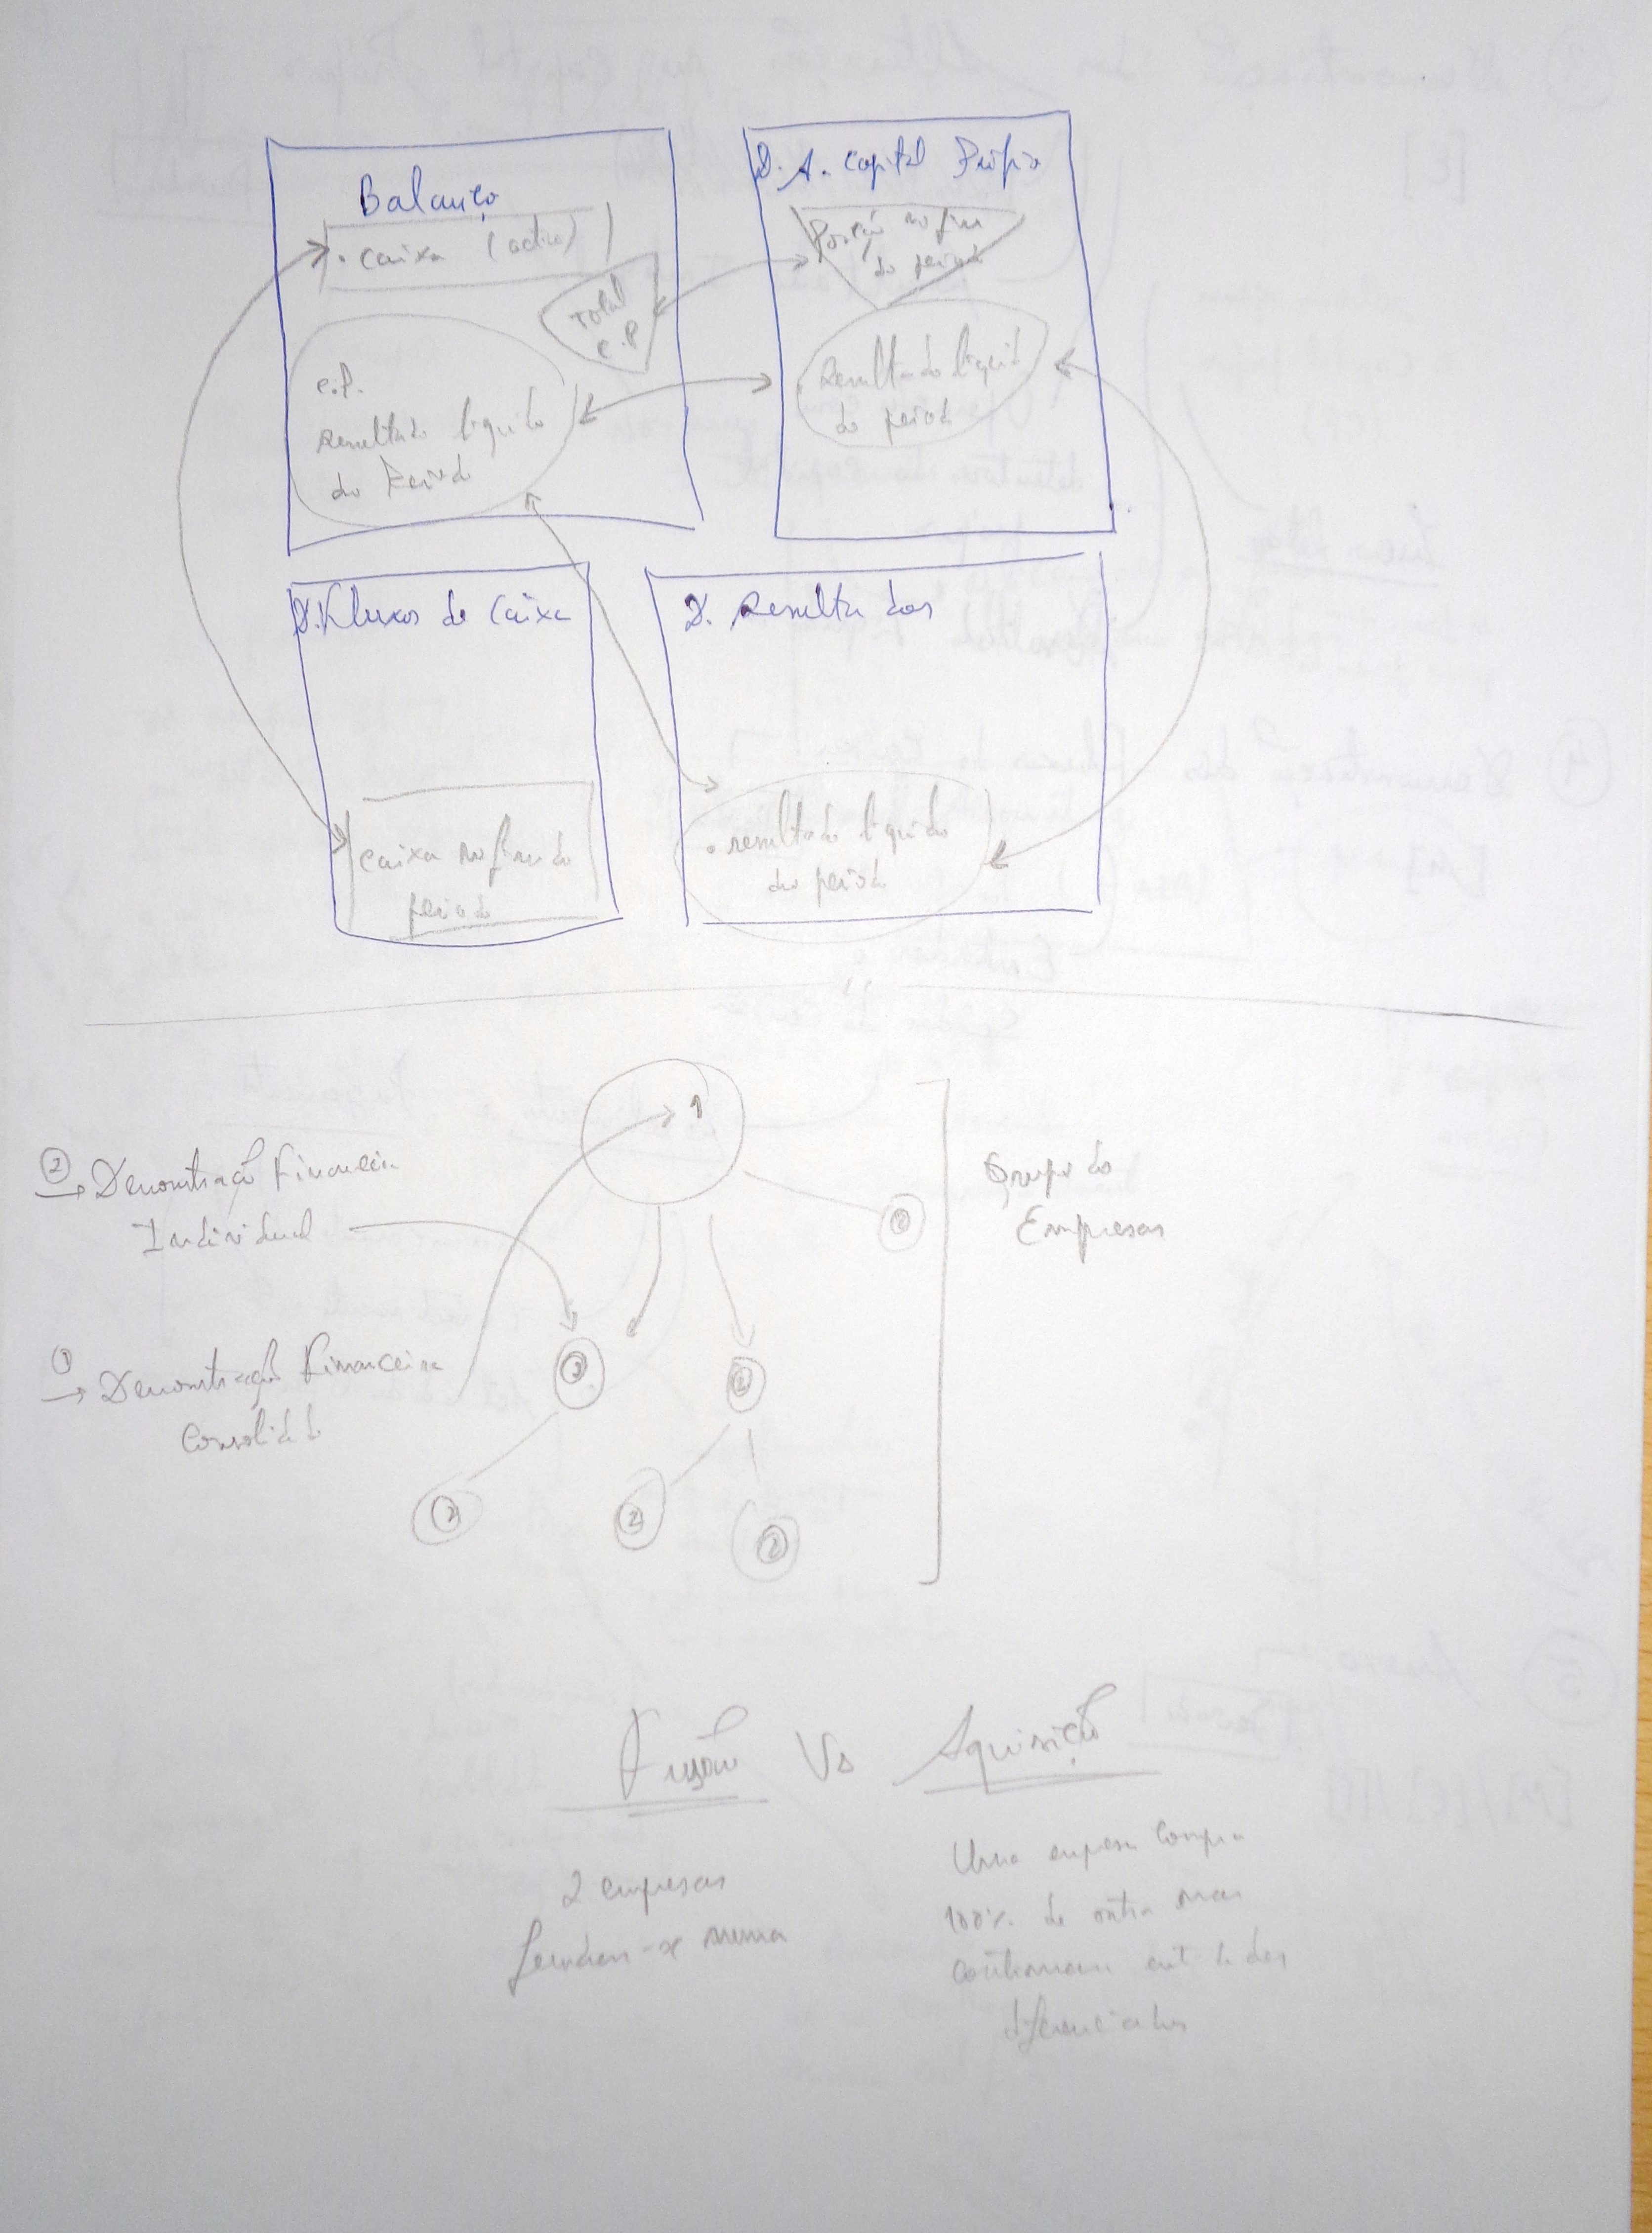 Balanço
. caixa (activo)
Total
C.P
C.P.
Resultado líquido
do Período
D. A. Capital Próprio
Posição no fim
do período
Resultado líquido
do período
D. Fluxos de Caixa
caixa no fim do
período
D. Resultados
. resultado líquido
do período
1
② → Demonstração Financeira
Individual
2
Grupo de
Empresas
① → Demonstração Financeira
Consolidada
2
2
2
2
2
Fusão Vs Aquisição
2 empresas
fundem-se numa
Uma empresa compra
100% de outra mas
continuam entidades
diferenciadas